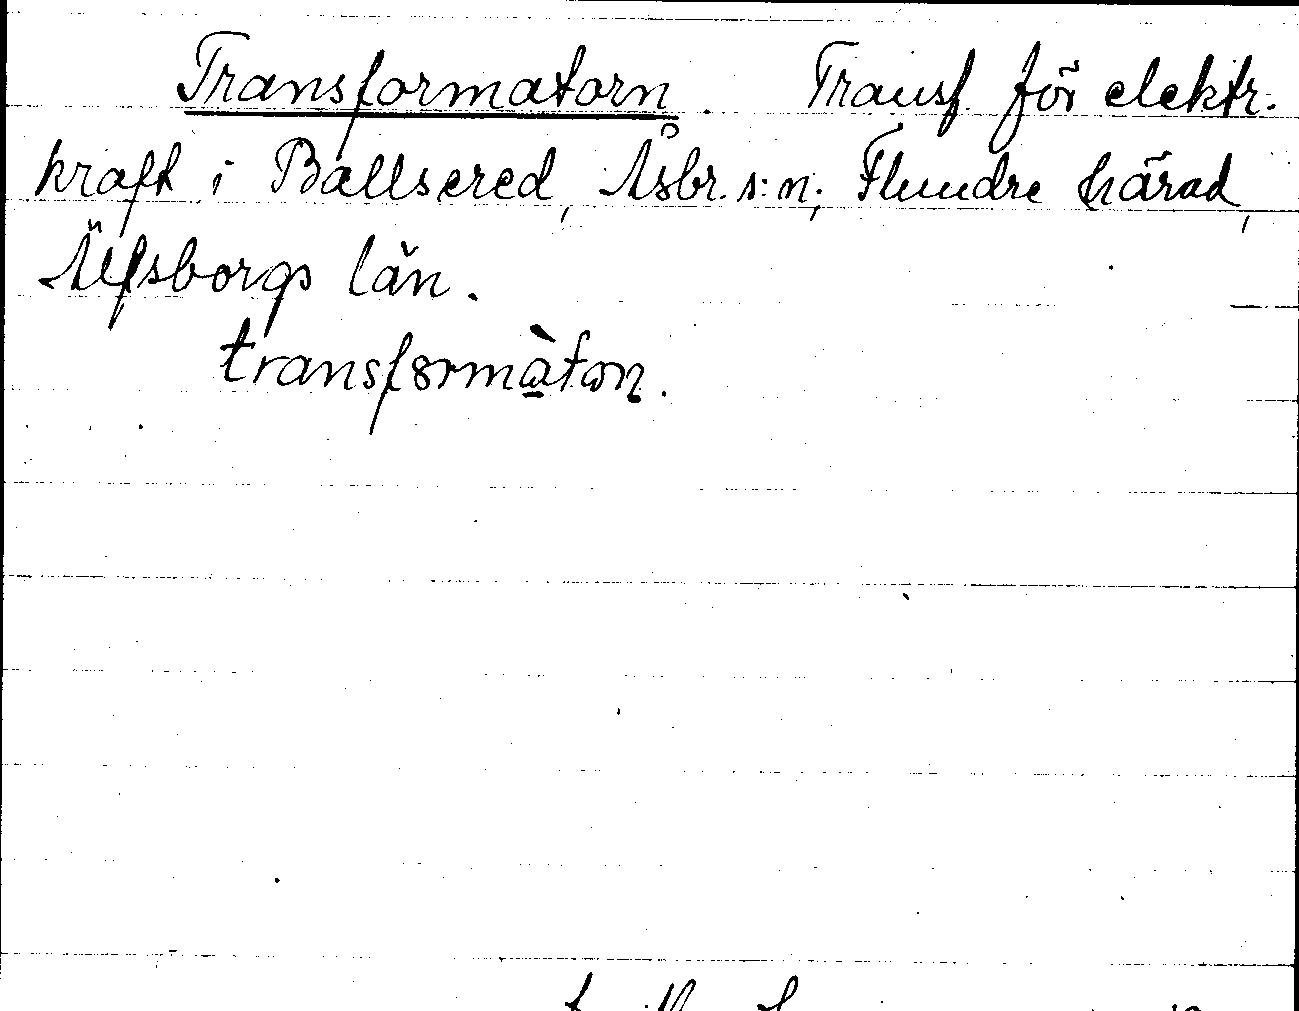 Transformatorn. Transf. för elektr.
kraft i Ballsered, Åsbr. s:n; Flundre härad,
Älfsborgs län.
transformàton.